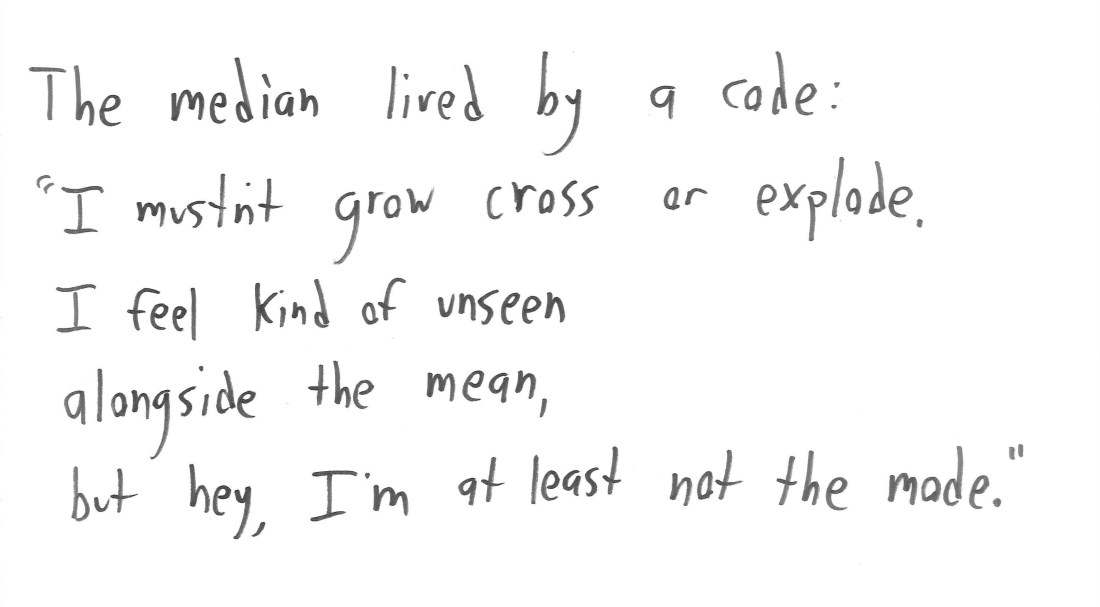 The median lived by a code:
"I mustn't grow cross or explode.
I feel kind of unseen
alongside the mean,
but hey, I'm at least not the mode."